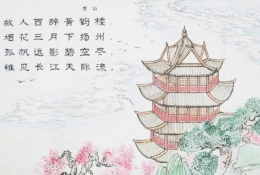 李白
故人西辞黄鹤楼，
烟花三月下扬州。
孤帆远影碧空尽，
惟见长江天际流。